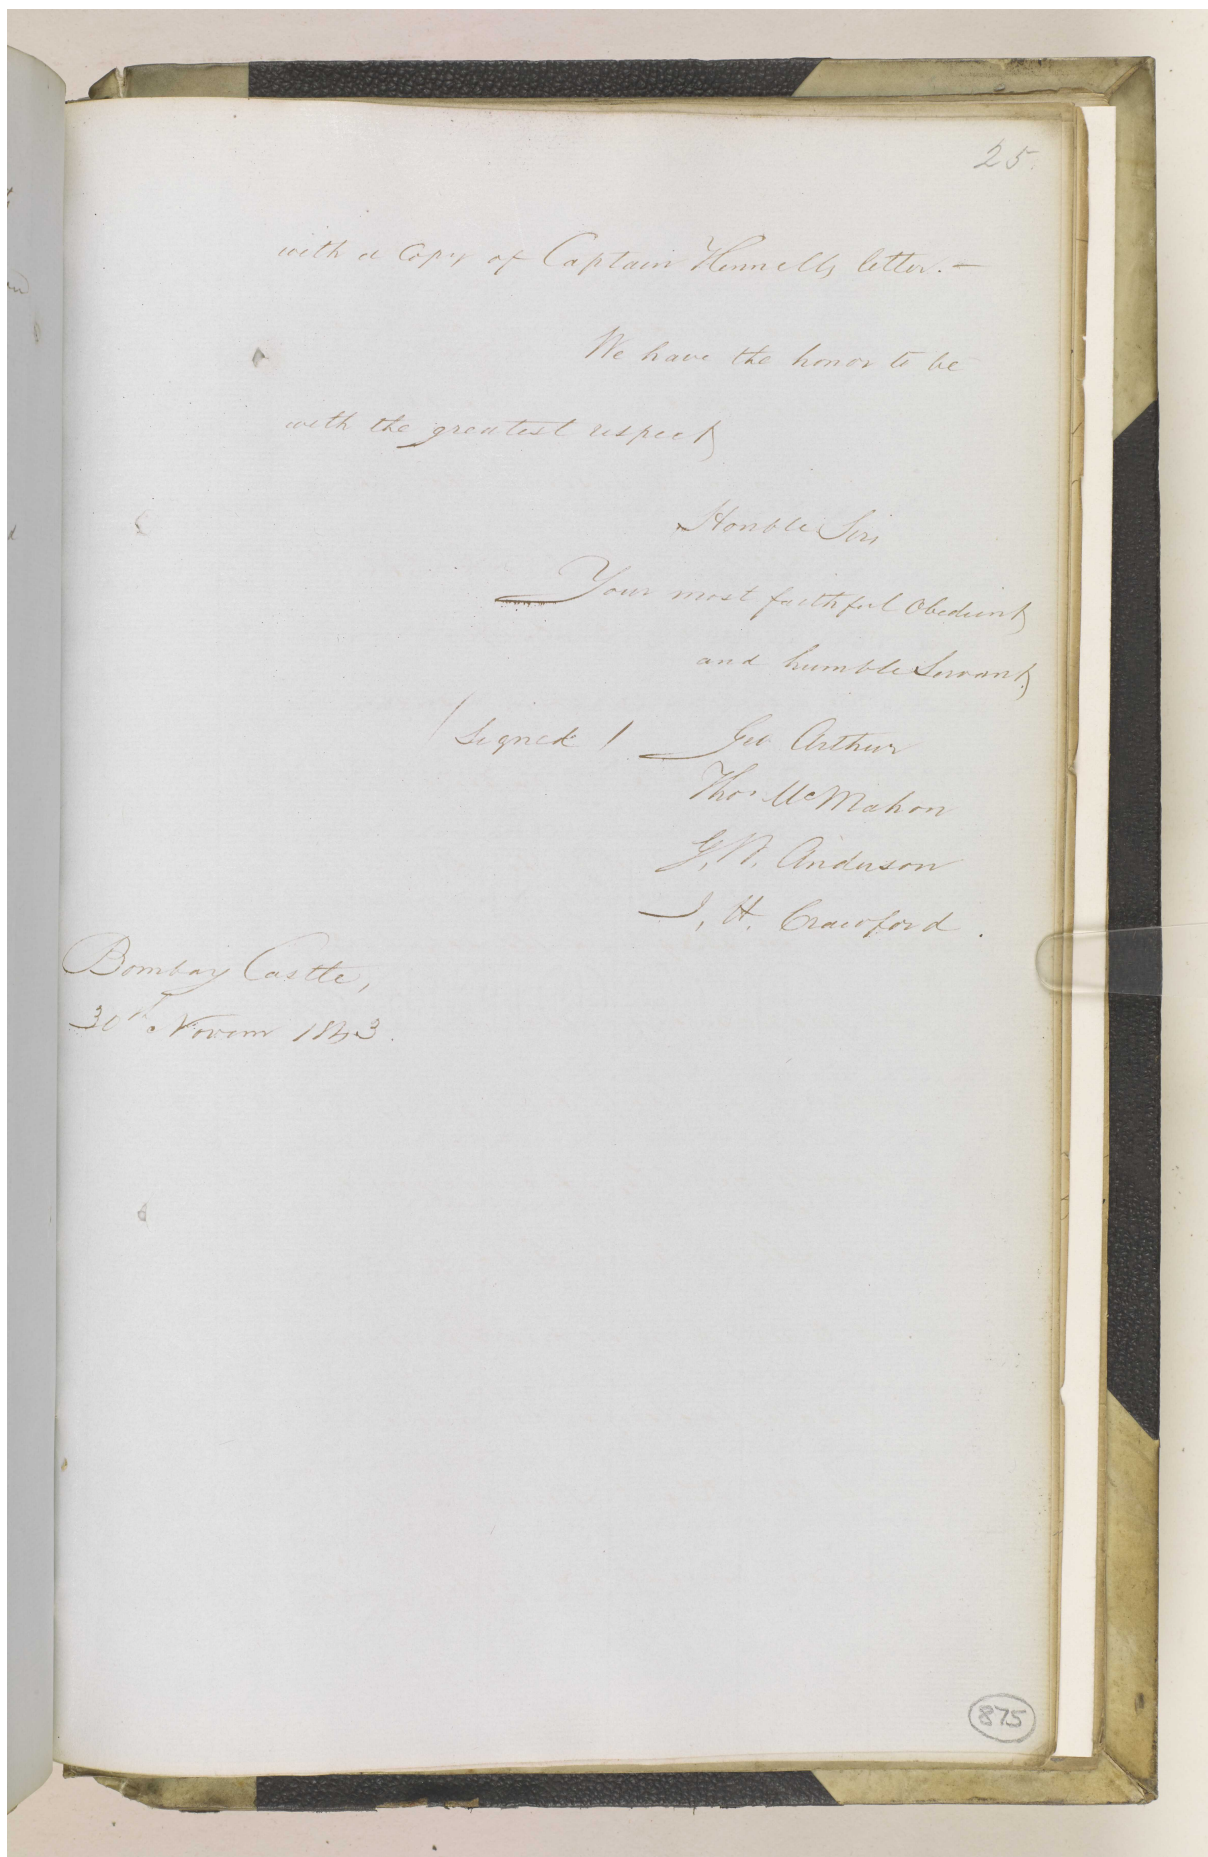 25.
with a Copy of Captain Hennell's letter. —
We have the honor to be
with the greatest respect
Honble Sirs
Your most faithful Obedient
and humble Servants
(Signed) Geo Arthur
Thos McMahon
G. W. Anderson
J. H. Crawford.
Bombay Castle,
30th Novem 1843.
875